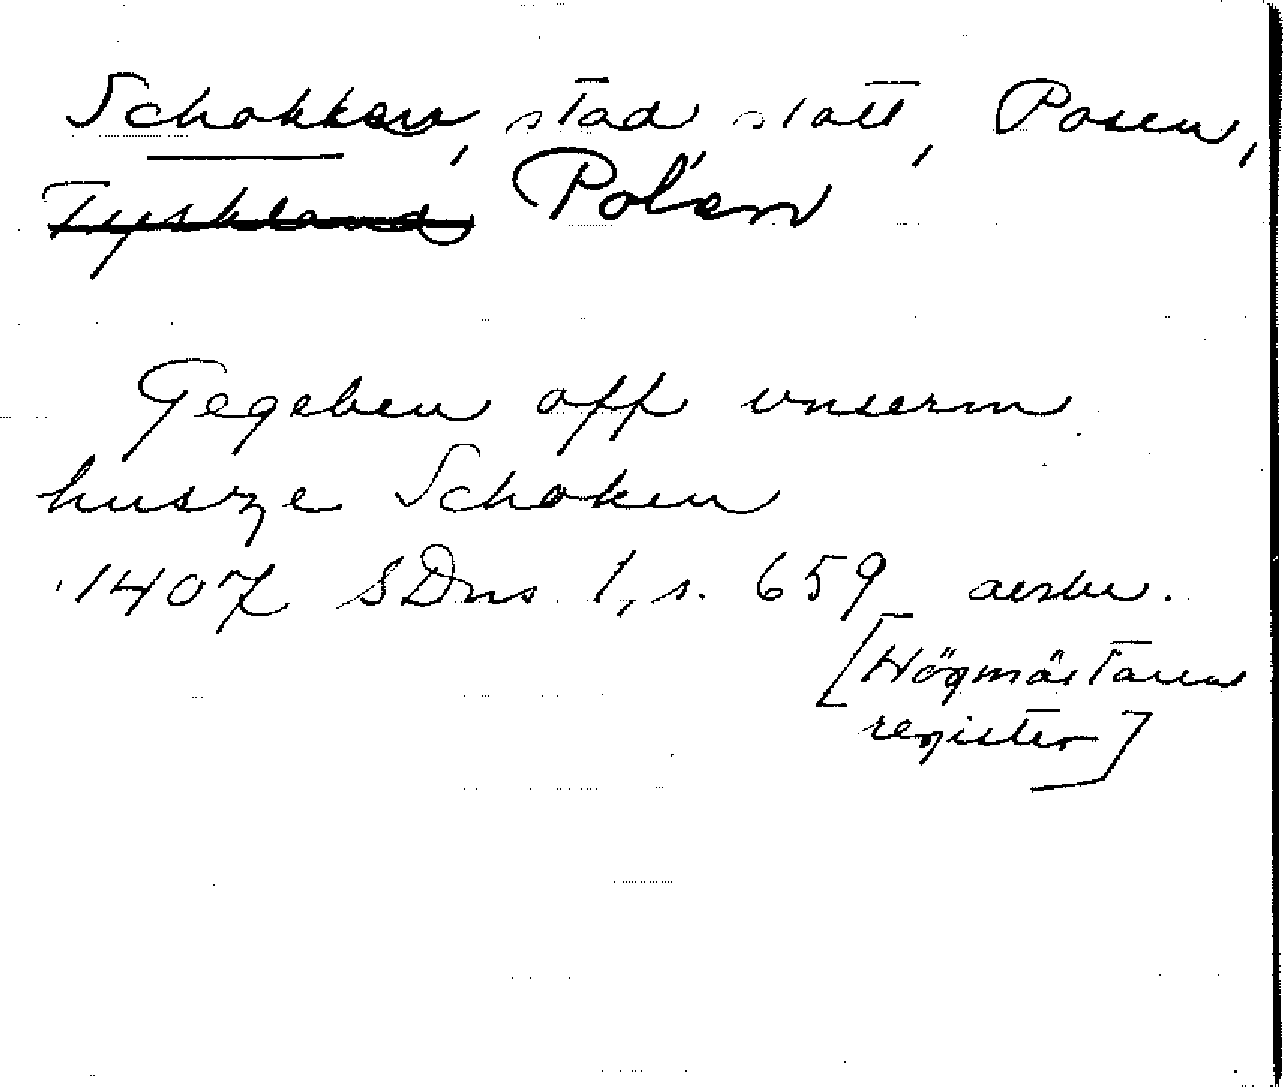 Schokken, stad slott, Posen,
Tyskland Polen
Gegeben off vnserm
husze Schoken
1407 SDns 1, s. 659 avskr.
[Högmästarens
register]